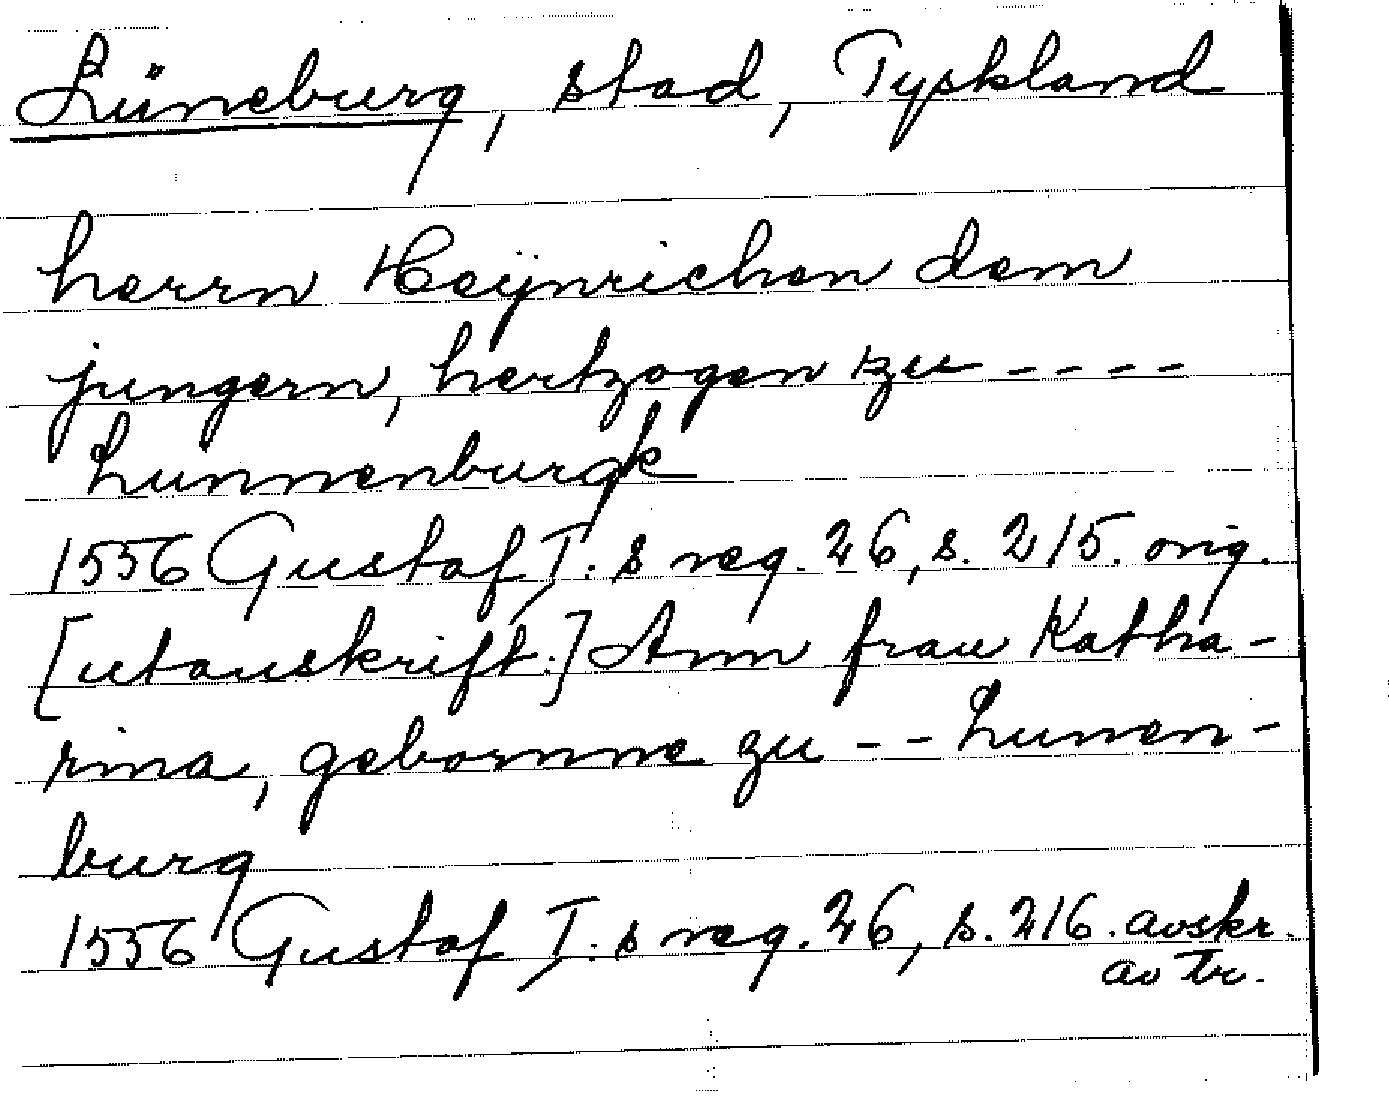 Lüneburg, stad, Tyskland
herrn Heÿnrichen dem
jungern, hertzogen zu - - - -
Lunnenburgk
1556 Gustaf I:s reg. 26, s. 215. orig.
[utanskrift:] Ann frau Katha-
rina, gebornne zu - - Lunen-
burg
1556 Gustaf I:s reg. 26, s. 216. avskr.
av tr.